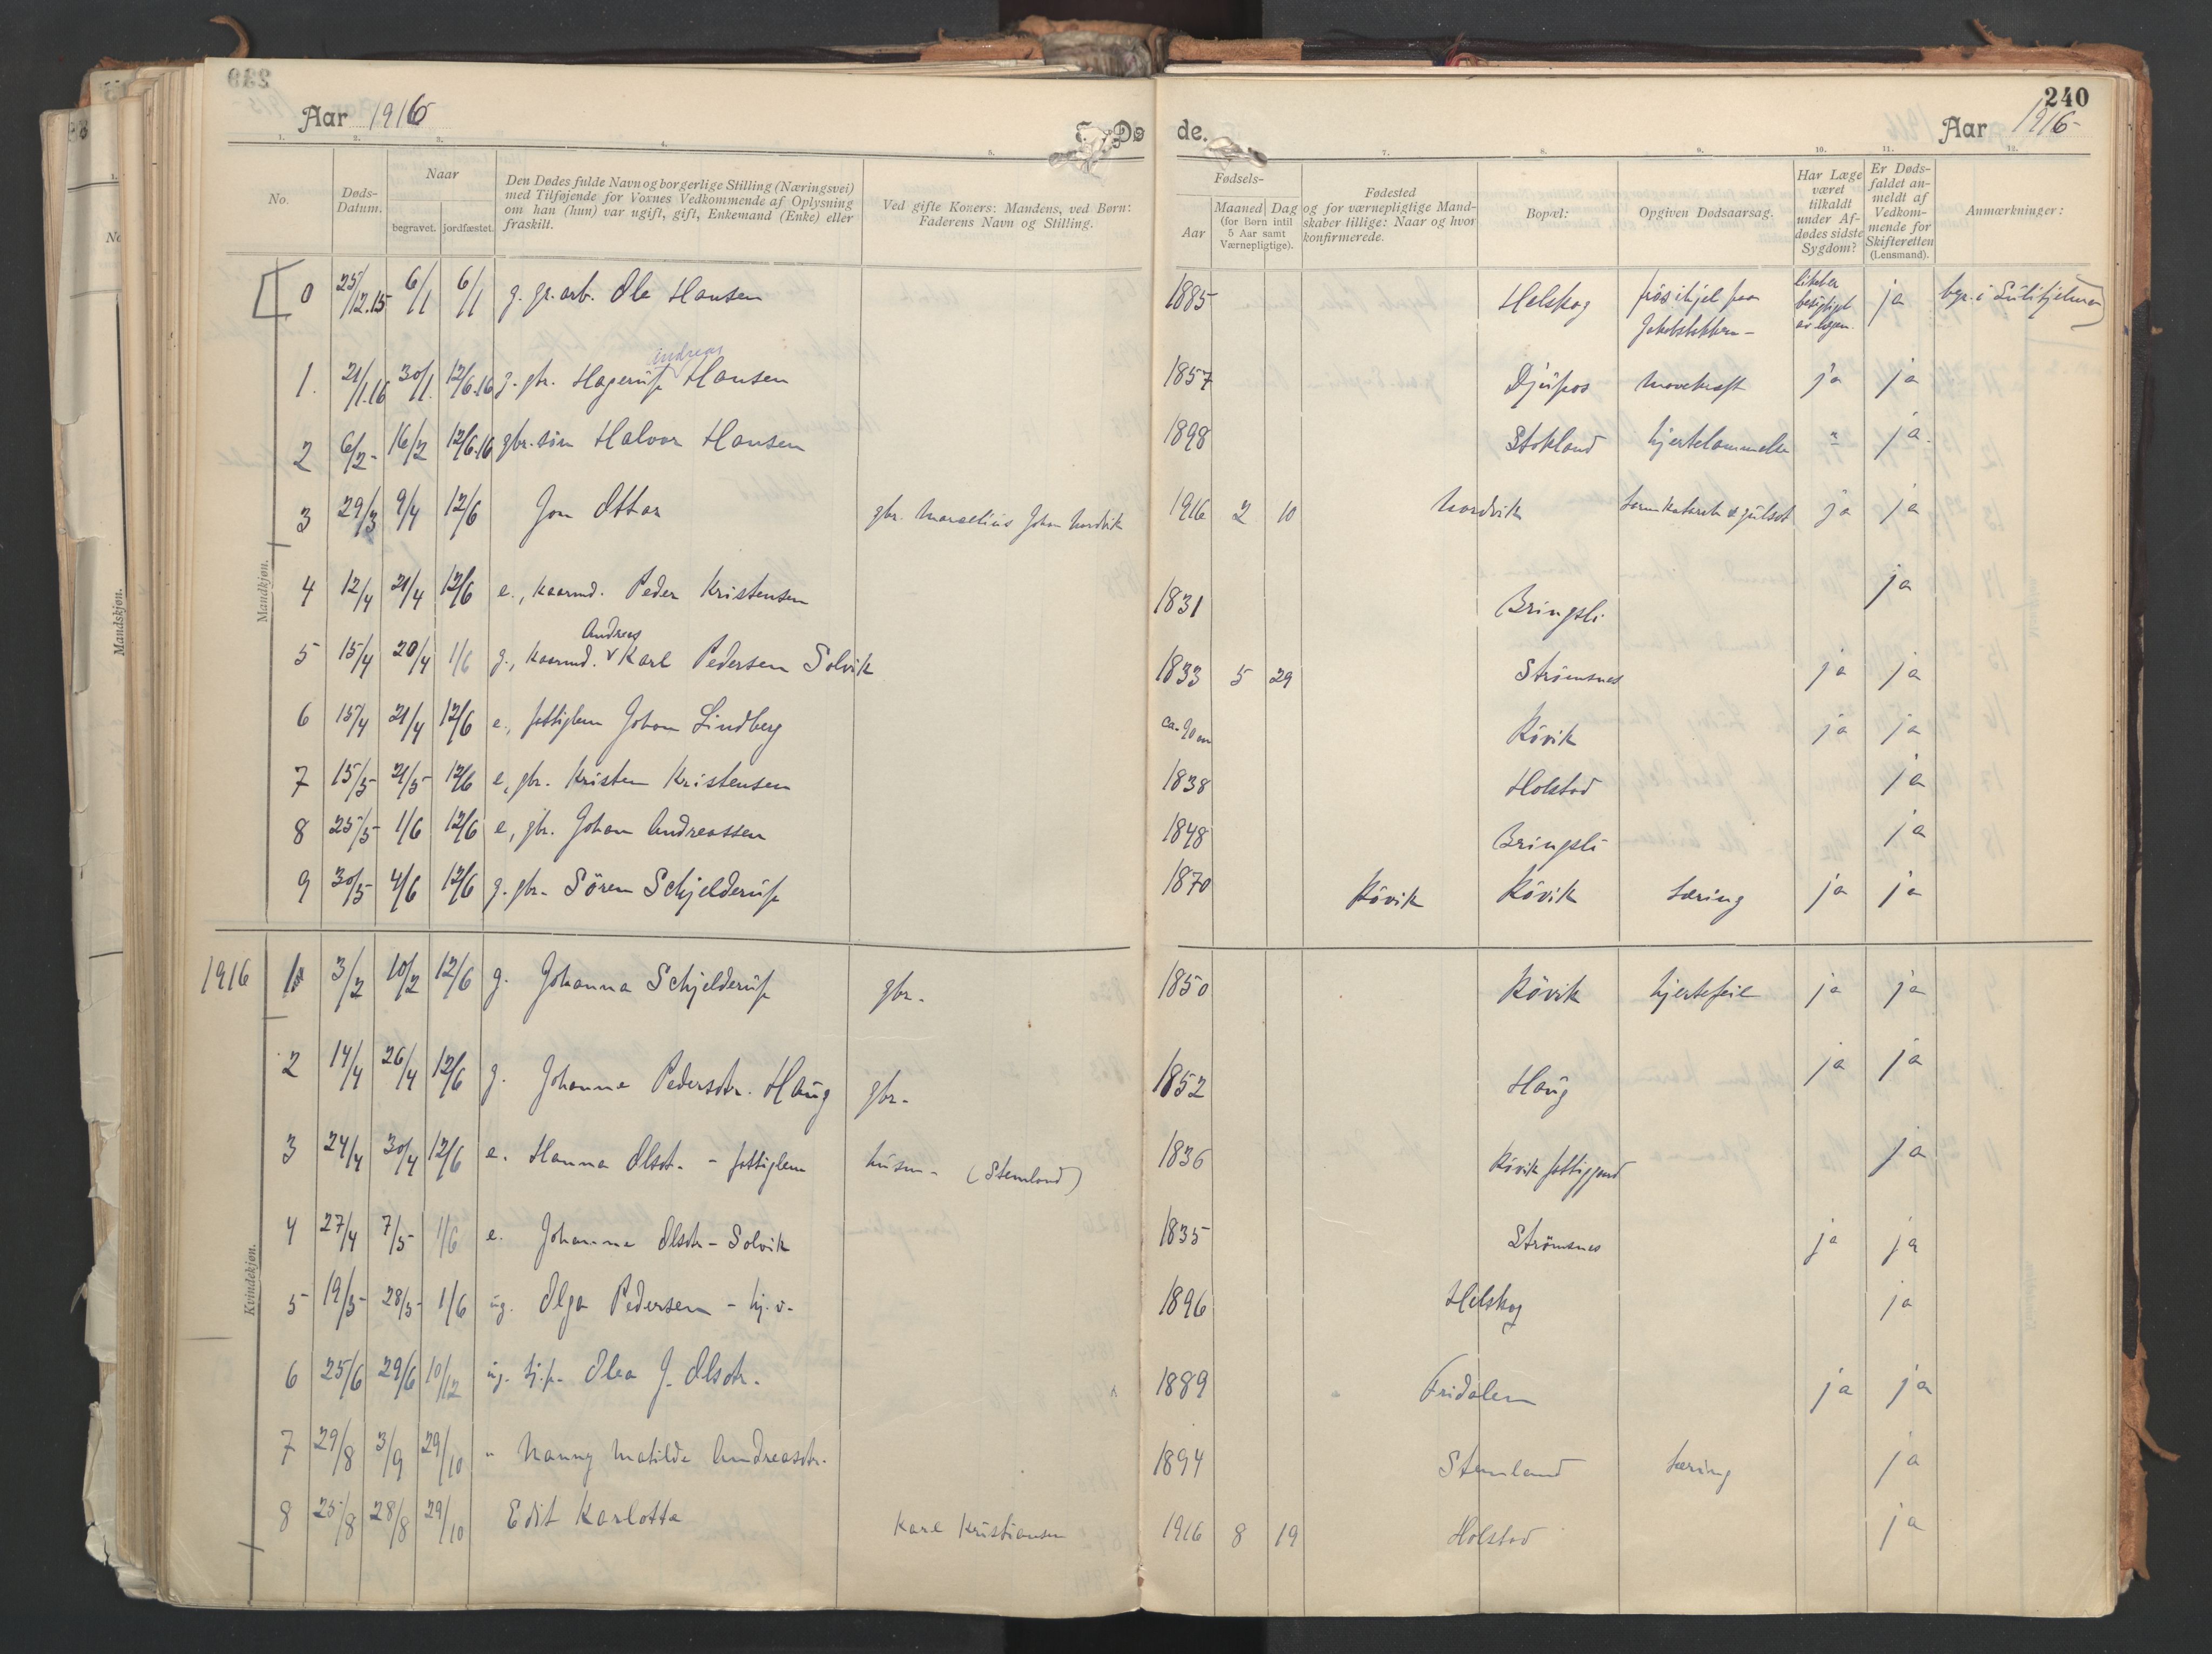 Aar 1916
Dø de.
240
Aar 1916
1. 2. 3. 4. 5. 7. 8. 9. 10. 11. 12.
No. Døds-Datum. Naar begravet. jordfæstet. Den Dødes fulde Navn og borgerlige Stilling (Næringsvei) med Tilføjende for Voxnes Vedkommende af Oplysning om han (hun) var ugift, gift, Enkemand (Enke) eller fraskilt. Ved gifte Koners: Mandens, ved Børn: Faderens Navn og Stilling. Fødsels- Aar Maaned Dag (for Børn intil 5 Aar samt Værnepligtige). Fødested og for værnepligtige Mandskaber tillige: Naar og hvor konfirmerede. Bopæl: Opgiven Dødsaarsag. Har Læge været tilkaldt under Afdødes sidste Sygdom? Er Dødsfaldet anmeldt af Vedkommende for Skifteretten (Lensmand). Anmærkninger:
Mandkjøn.
0 25/12.15 6/1 6/1 g. gr.arb. Ole Hansen 1885 Helskog frøs ihjel paa Liket er besigtiget av lægen. ja bgr. i Sulitjelma
1. 21/1.16 30/1. 12/6.16 g. gbr. Hagerup Andreas Hansen 1857 Djupos mavekræft ja ja
2 6/2 16/2 12/6.16 gbr. søn Halvor Hansen 1898 Stokland hjertelammelse " ja.
3 29/3 9/4 12/6 Jon Ottar gbr. Marcelius Johan Nordvik 1916 2 10 Nordvik tarmkatarrh & gulsot ja ja
4 12/4 21/4 12/6 e., kaarmd. Peder Kristensen 1831 Bringsli ja
5 15/4 20/4 1/6 g., kaarmd. Andreas Karl Pedersen Solvik 1833 5 29 Strømsnes ja ja
6 15/4 21/4 12/6 e., fattiglem Johan Lindberg ca. 90 aar Røvik ja ja
7 15/5 21/5 12/6 e, gbr. Kristen Kristensen 1838 Holstad ja
8 25/5 1/6 12/6 e, gbr. Johan Andreassen 1848 Bringsli ja
9 30/5 4/6 12/6 g. gbr. Søren Schjelderup 1870 Røvik Røvik tæring ja ja
1916
Kvindekjøn.
1 3/2 10/2 12/6 g. Johanna Schjelderup gbr. 1850 Røvik hjertefeil ja ja
2 14/4 26/4 12/6 g. Johanna Pedersdtr. Haug gbr. 1852 Haug ja ja
3 24/4 30/4 12/6 e. Hanna Olsdt. - fattiglem husm. (Stemland) 1836 Røvik fattiggaard ja
4 27/4 7/5 1/6 e. Johanna Olsdtr - Solvik 1835 Strømsnes ja ja
5 19/5 28/5 1/6 ug. Olga Pedersen - hj.v. 1896 Helskog ja
6 25/6 29/6 10/12 ug. tj.p. Olea J. Olsdtr. 1889 Fridalen ja ja
7 29/8 3/9 29/10 " Nanny Matilde Andreasdtr. 1894 Stemland tæring ja
8 25/8 28/8 29/10 Edit Karlotta Karl Kristiansen 1916 8 19 Holstad ja
Mandskjøn.